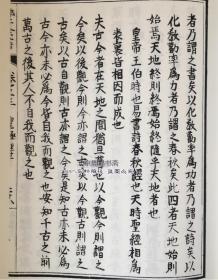 者乃謂之書矣以化教勸率為功者乃謂之詩矣以
化教勸率為力者乃謂之春秋矣此四者天地始則
始焉天地終則終焉始終隨乎天地者也
皇帝王伯時也易書詩春秋經也天時聖經相為
表裏皆相因而成也
夫古今者在天地之間猶旦暮也以今觀今則謂之
今矣以後觀今則今亦謂之古矣以今觀古則謂之
古矣以古自觀則古亦謂之今矣是知古亦未必為
古今亦未必為今皆自我而觀之也安知千古之前
萬古之後其人不自我而觀之也